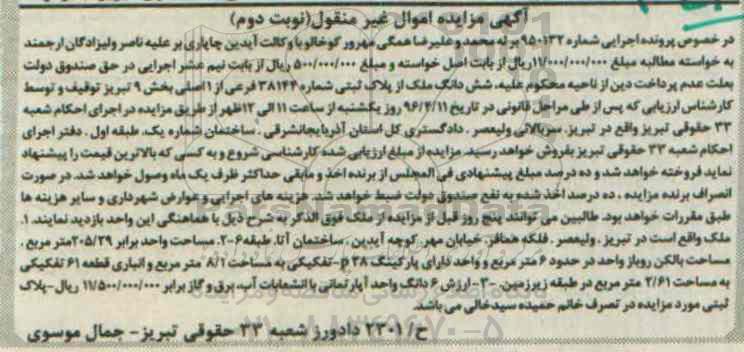 آگهی مزایده اموال غیر منقول(نوبت دوم)
در خصوص پرونده اجرایی شماره ۹۵۰۱۳۲ بر له محمد و علیرضا همگی مهرور کوخالو با وکالت آیدین چاپاری بر علیه ناصر ولیزادگان ارجمند
به خواسته مطالبه مبلغ ۱۱/۰۰۰/۰۰۰/۰۰۰ ریال از بابت اصل خواسته و مبلغ ۵۰۰/۰۰۰/۰۰۰ ریال از بابت نیم عشر اجرایی در حق صندوق دولت
بعلت عدم پرداخت دین از ناحیه محکوم علیه، شش دانگ ملک از پلاک ثبتی شماره ۳۸۱۴۴ فرعی از ۱ اصلی بخش ۹ تبریز توقیف و توسط
کارشناس ارزیابی که پس از طی مراحل قانونی در تاریخ ۹۶/۴/۱۱ روز یکشنبه از ساعت ۱۱ الی ۱۲ ظهر از طریق مزایده در اجرای احکام شعبه
۳۳ حقوقی تبریز واقع در تبریز. سربالائی ولیعصر . دادگستری کل استان آذربایجانشرقی . ساختمان شماره یک. طبقه اول . دفتر اجرای
احکام شعبه ۳۳ حقوقی تبریز بفروش خواهد رسید. مزایده از مبلغ ارزیابی شده کارشناسی شروع و به کسی که بالاترین قیمت را پیشنهاد
نماید فروخته خواهد شد و ده درصد مبلغ پیشنهادی فی المجلس از برنده اخذ و مابقی حداکثر ظرف یک ماه وصول خواهد شد. در صورت
انصراف برنده مزایده ، ده درصد اخذ شده به نفع صندوق دولت ضبط خواهد شد. هزینه های اجرایی و عوارض شهرداری و سایر هزینه ها
طبق مقررات خواهد بود. طالبین می توانند پنج روز قبل از مزایده از ملک فوق الذکر به شرح ذیل با هماهنگی این واحد بازدید نمایند. ۱.
ملک واقع است در تبریز . ولیعصر . فلکه همافر. خیابان مهر. کوچه آیدین . ساختمان آتا. طبقه۶-۲. مساحت واحد برابر ۲۰۵/۲۹ متر مربع ،
مساحت بالکن روباز واحد در حدود ۶ متر مربع و واحد دارای پارکینگ p ۳۸-تفکیکی به مساحت ۸/۲ متر مربع و انباری قطعه ۶۱ تفکیکی
به مساحت ۲/۶۱ متر مربع در طبقه زیرزمین. -۳-ارزش ۶ دانگ واحد آپارتمانی با انشعابات آب، برق و گاز برابر ۱۱/۵۰۰/۰۰۰/۰۰۰ ریال-پلاک
ثبتی مورد مزایده در تصرف خانم حمیده سیدخالی می باشد
ح/ ۲۳۰۱ دادورز شعبه ۳۳ حقوقی تبریز- جمال موسوی